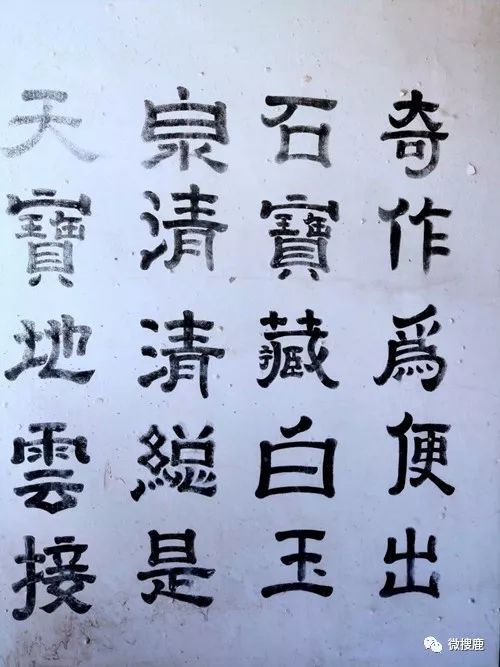 奇作爲便出
石寶藏白玉
泉清清総是
天寶地雲接
微搜鹿